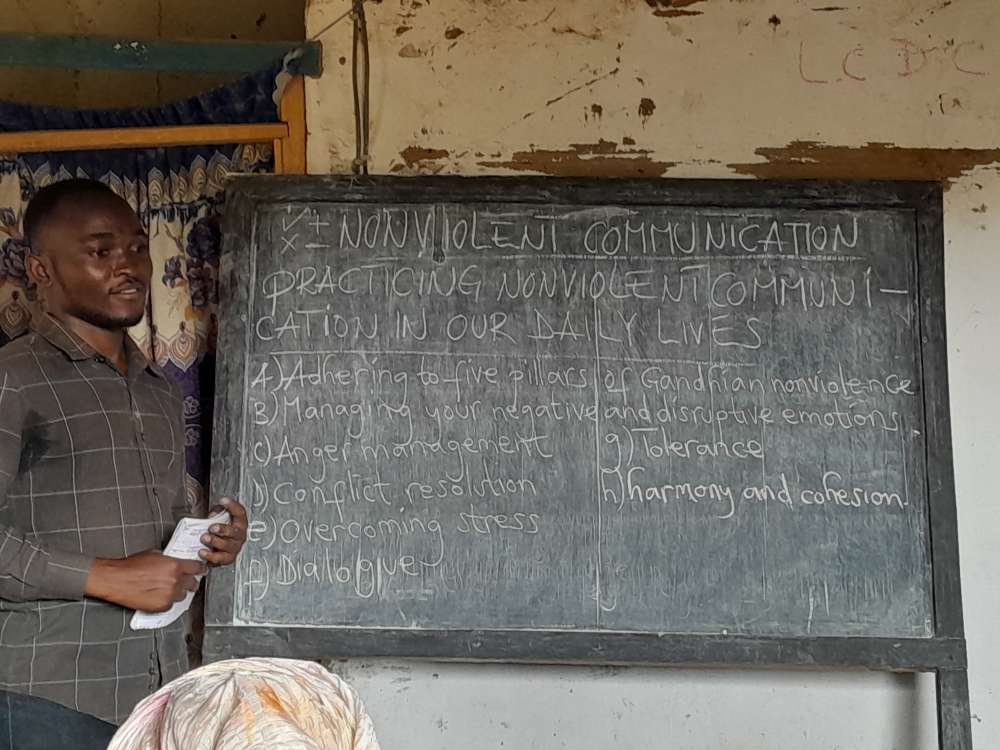 L.C D.C
✓ +
× – NONVIOLENT COMMUNICATION
PRACTICING NONVIOLENT COMMUNI-
CATION IN OUR DAILY LIVES
A) Adhering to five pillars of Gandhian nonviolence
B) Managing your negative and disruptive emotions.
c) Anger management
g) Tolerance
D) Conflict resolution
h) harmony and cohesion.
e) Overcoming stress
f) Dialogue